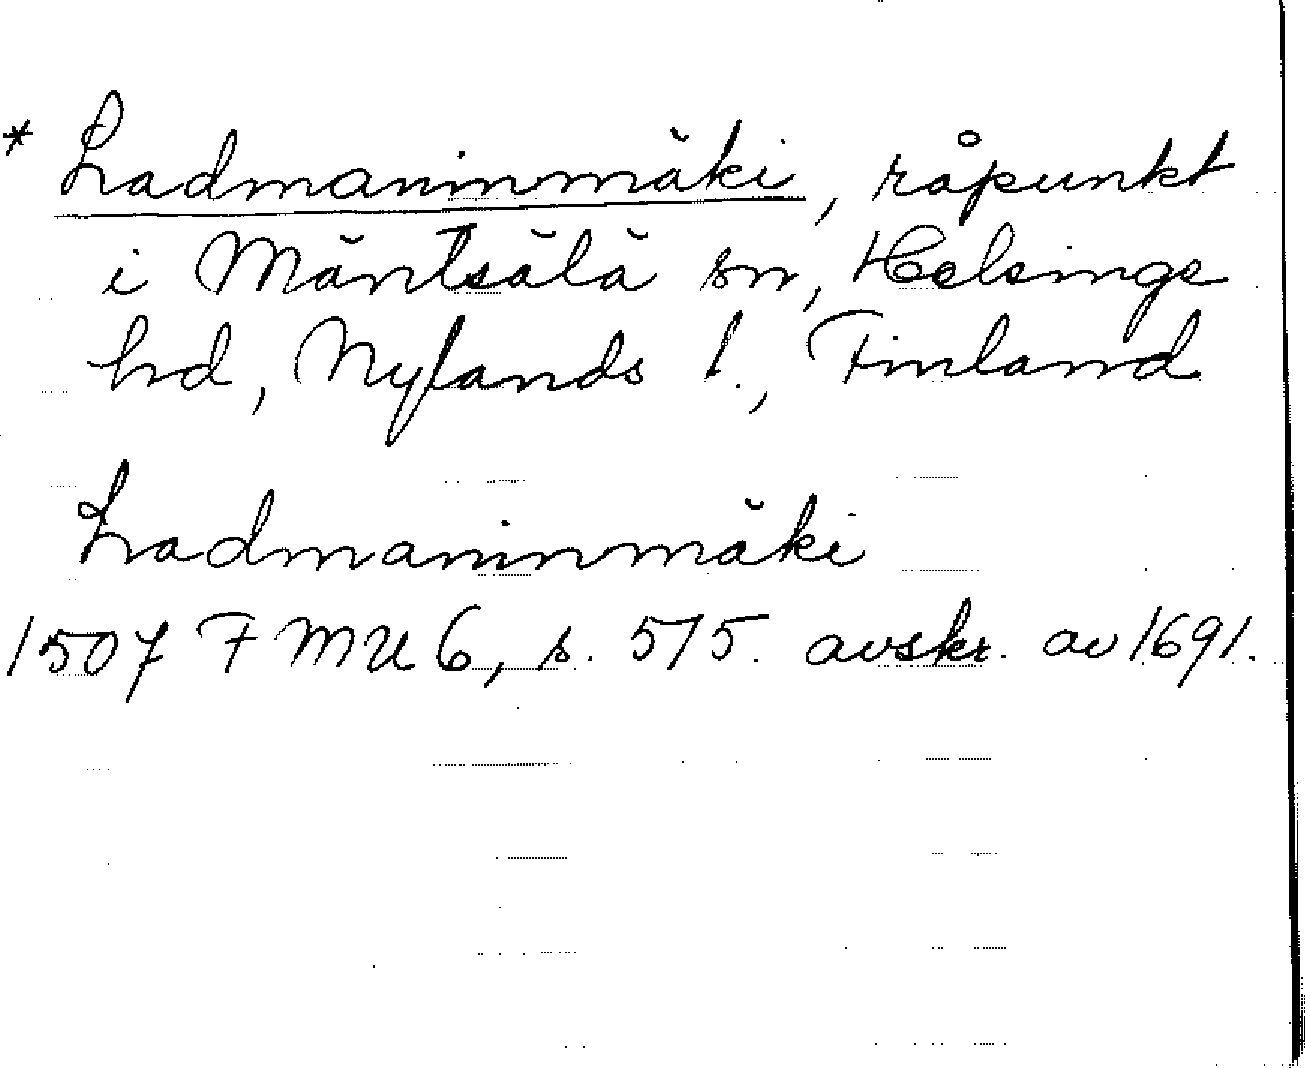 * Ladmaninmäki, råpunkt
i Mäntsälä sn, Helsinge
hd, Nylands l., Finland
Ladmaninmäki
1507 FMU 6, s. 575. avskr. av 1691.